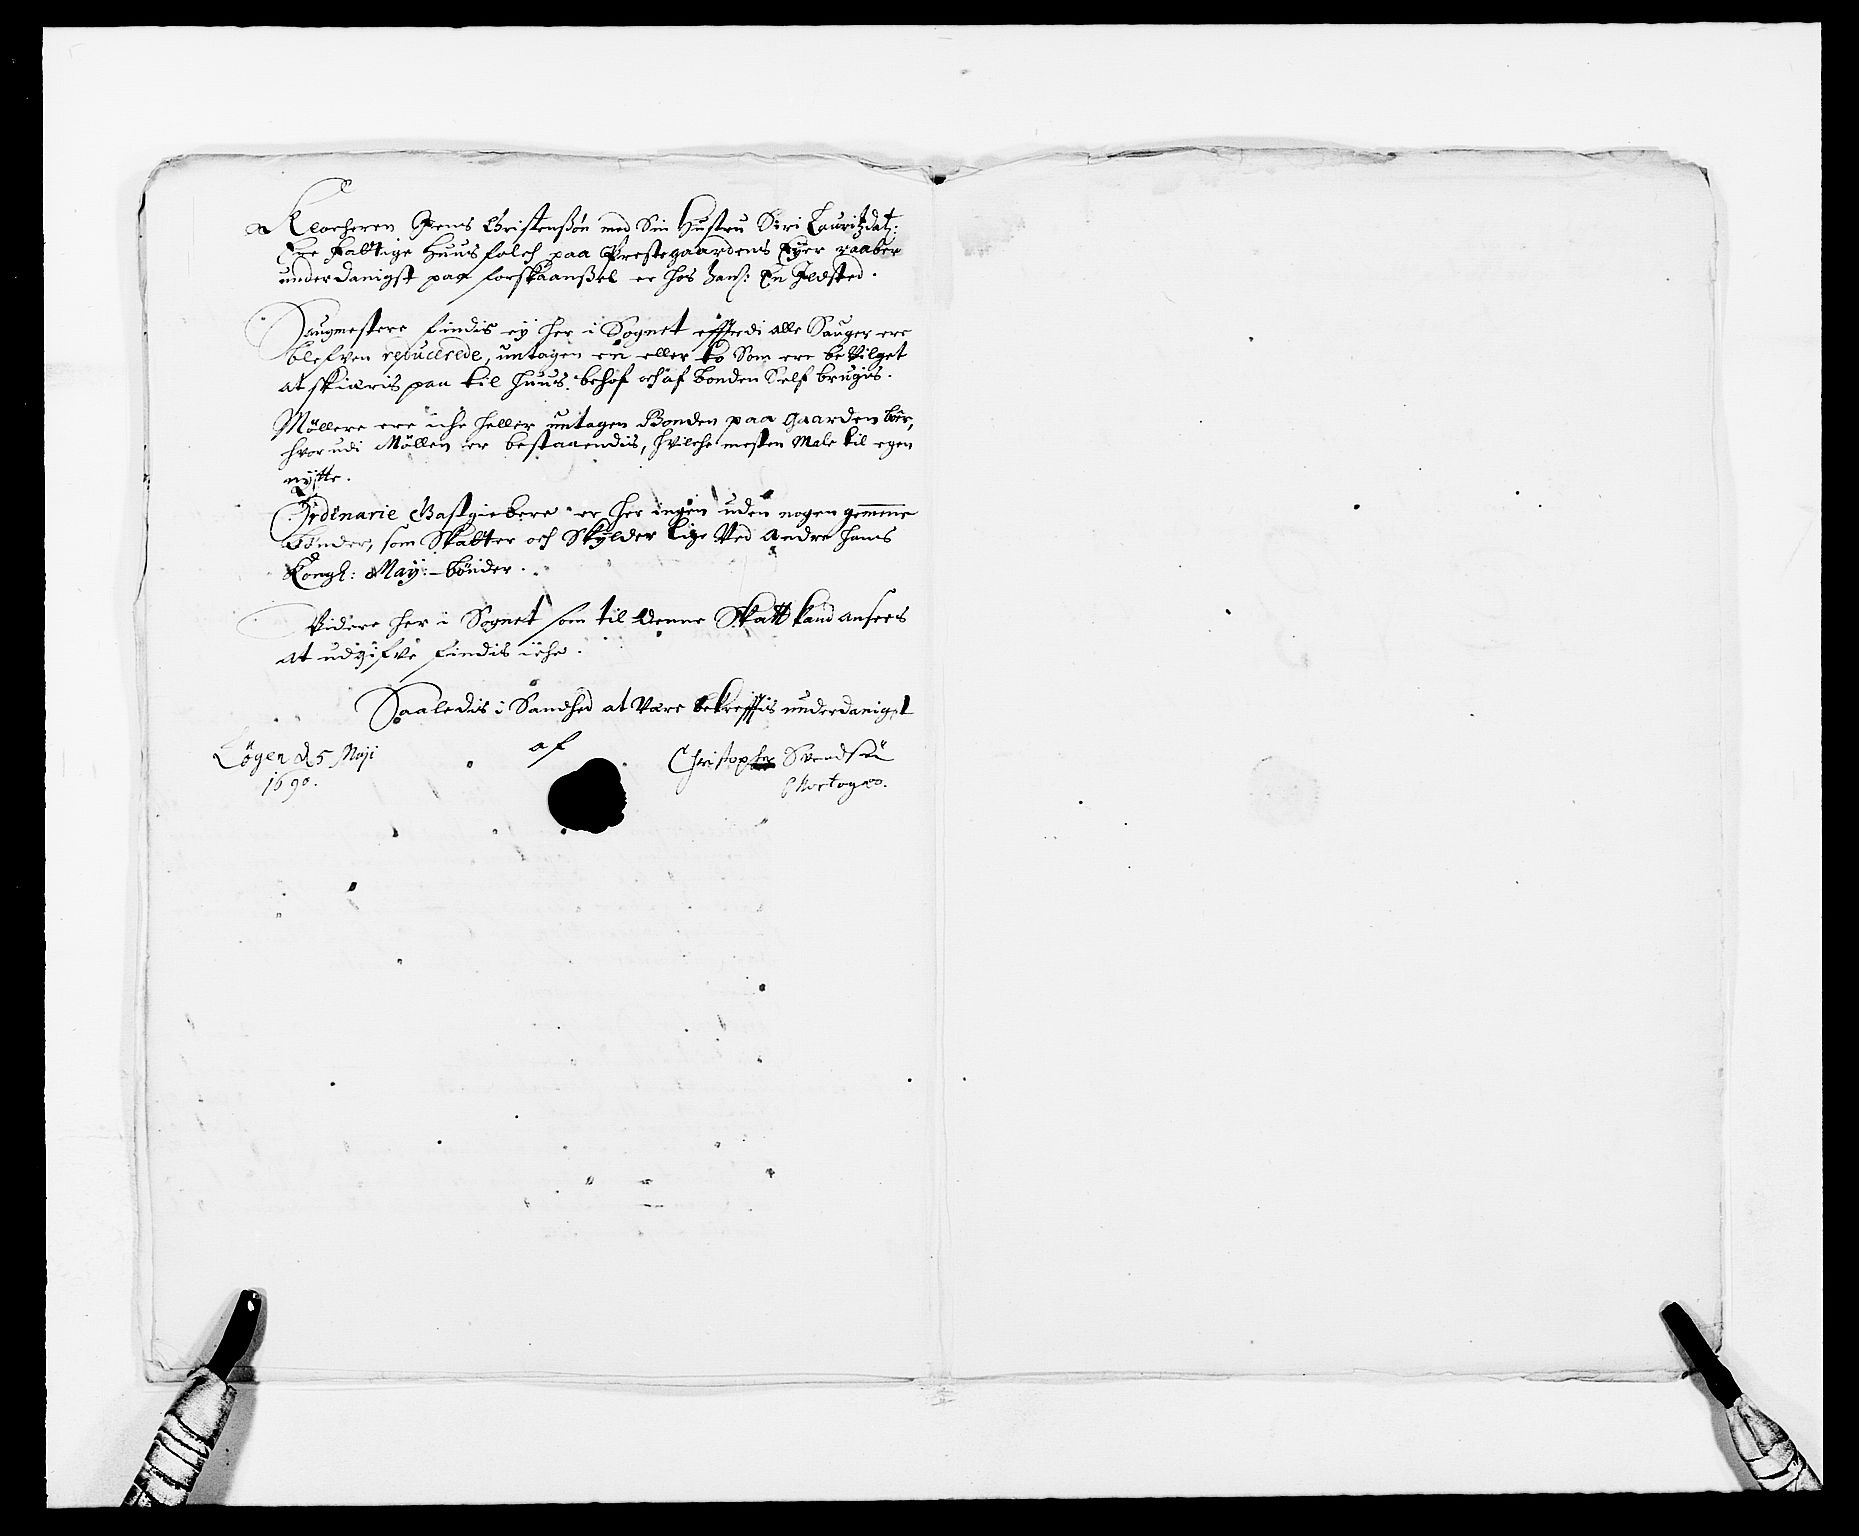 Klocheren Jens Christenßøn med Sin Hustru Siri Lauritzdatt:
Ere Fattige Huus folch paa Prestegaardens Eyer raaber
underdanigst paa forskaanßel er hos ham: En Ildsted.
Saugmestere findis ey her i Sognet efftterdi alle Sauger ere
blefven reducerede, untagen en eller to Som ere bevilget
at skiæris paa til Huus behof och af bonden Self brugis.
Möllere ere iche heller untagen Bonden paa Gaarden boer,
hvor udi Möllen er bestaaendis, hvilche mesten Male til egen
nytte.
Ordinarie Gastgiebere er her ingen uden nogen gemene
bönder, som Skatter och Skylder lige Ved Andre hans
Kongl: May: bönder.
Videre her i Sognet som til denne Skatt kand ansees
at udgifve findis iche.
Saaledis i Sandhed at Være bekrefftis underdanigst
af
Løgen d 5 Maji
1690.
Christopher Svendsøn